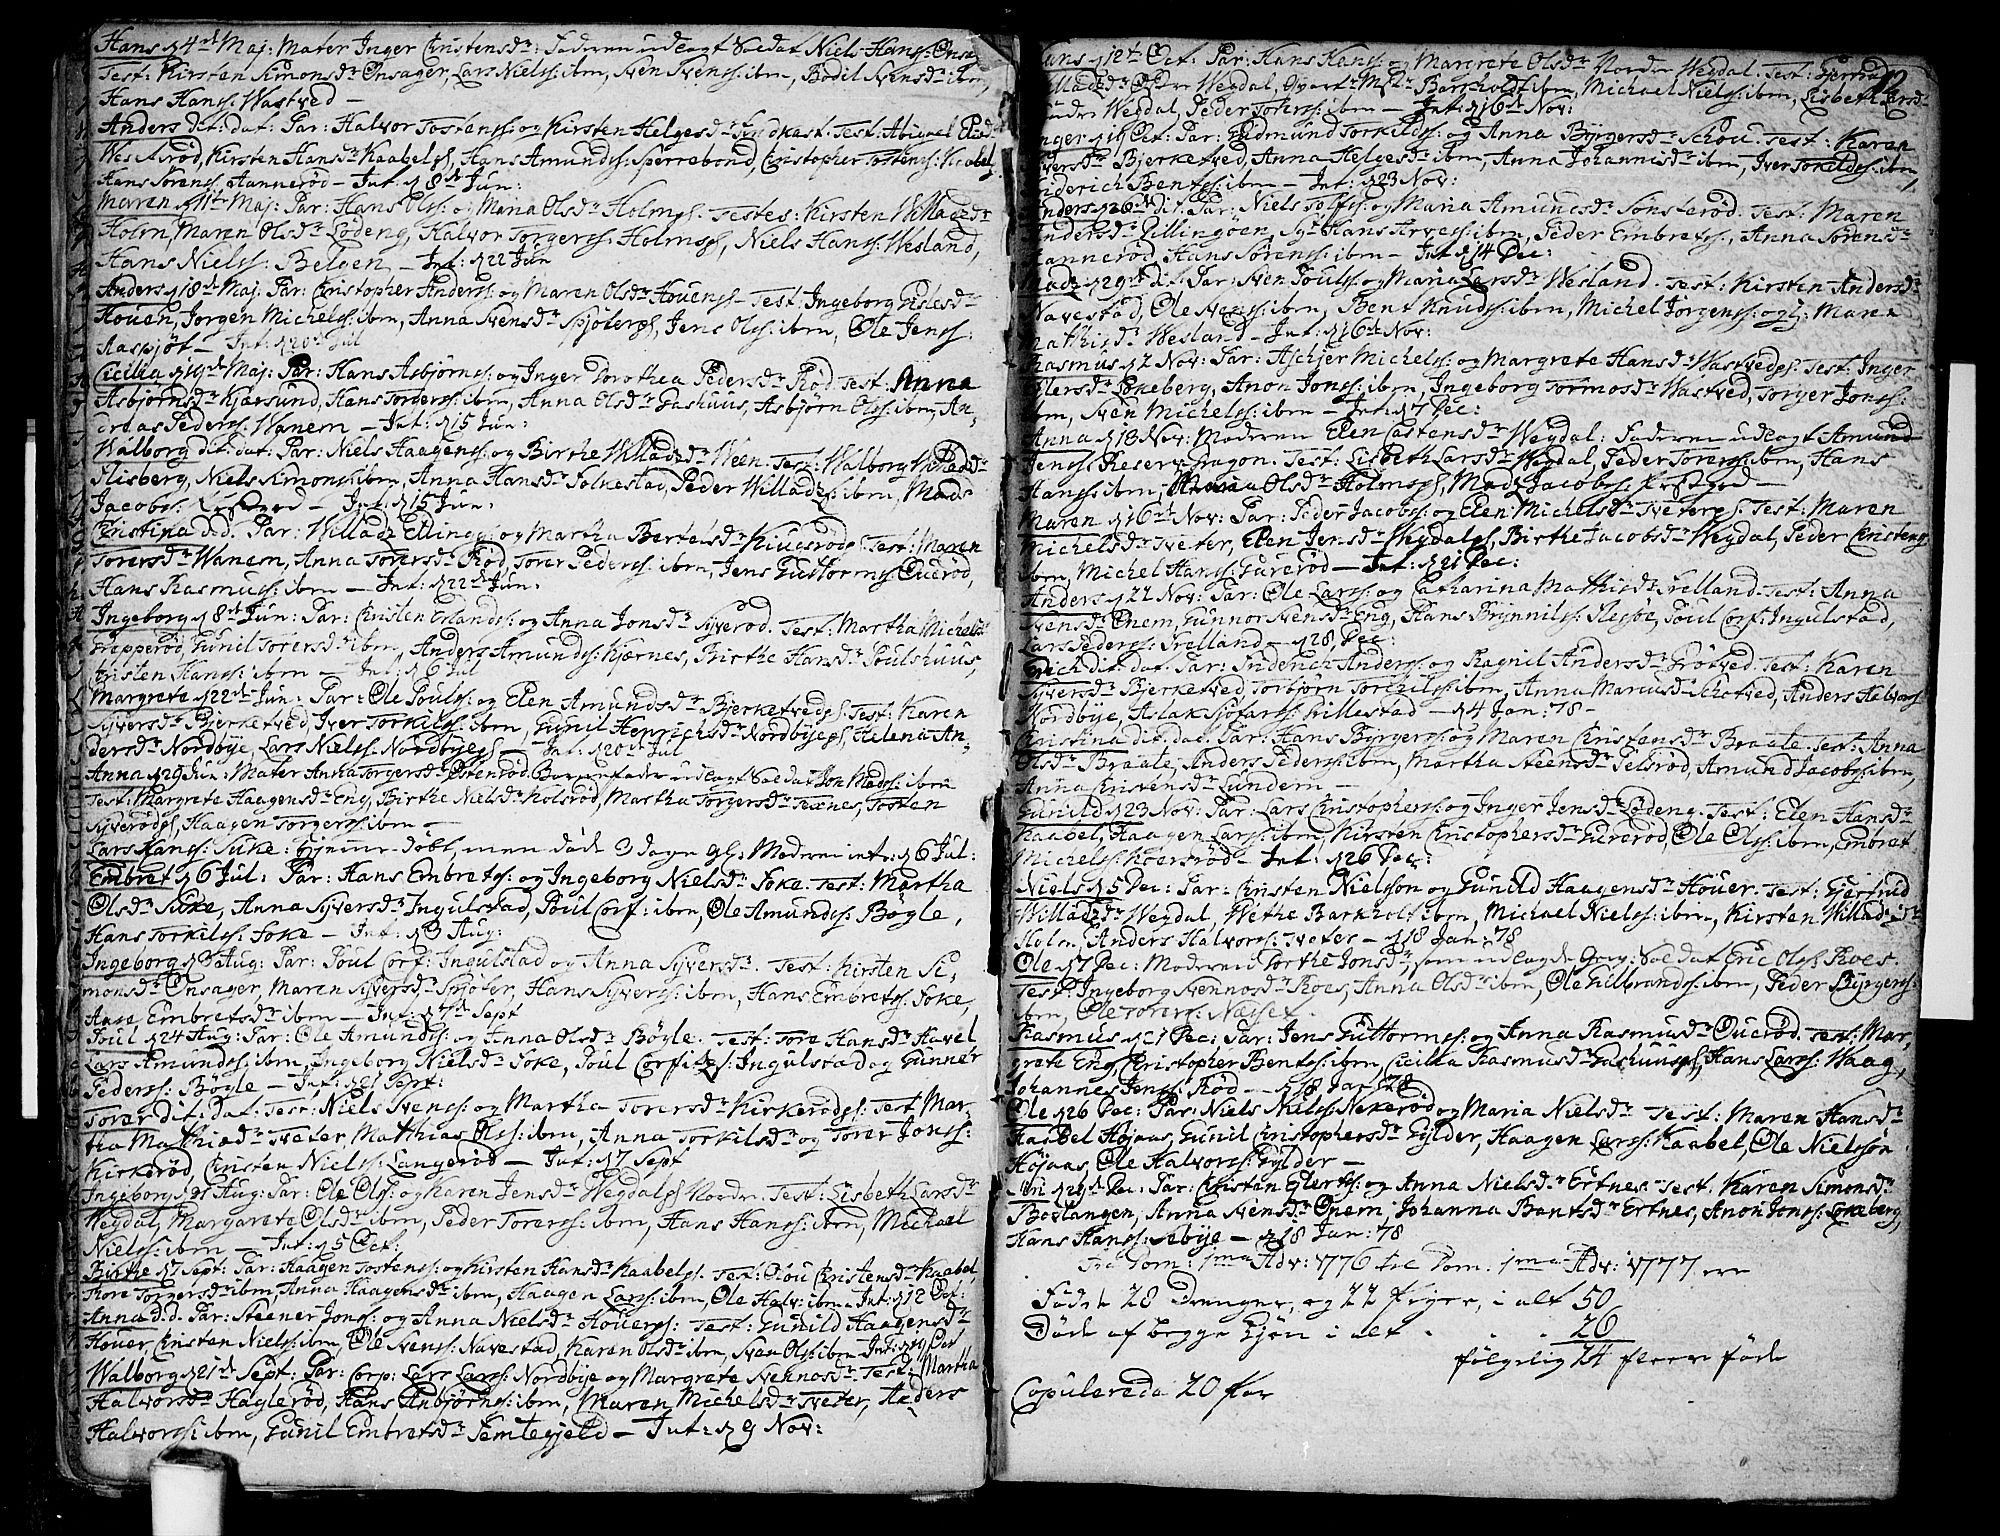 Hans d 4de Maj: Mater Inger Christensdr: Faderen udlagt Soldat Niels Hans: Onsa
Test: Kirsten Simonsdr Onsager, Lars Nielss: ibm, Sven Svens: ibm, Bodil Svensdr ibm,
Hans Hans: Wastved —
Anders dit: dat: Par: Halvor Tostens: og Kirsten Helgesdr Test: Abigael
Wesl Asrød, Kirsten Hansdr Kaabel, Hans Amunds: Sporrebond, Christopher Tostens: Kaabel
Hans Sørens: Aannerød — Int: d 8de Jun:
Maren d 11te Maj: Par: Hans Ols: og Maria Olsdr Holms. Testes: Kirsten Willadzdr
Holm, Maren Olsdr Lodeng, Halvor Torgers: Holms, Niels Hans: Wesland,
Hans Niels: Belgen — Int: d 22 Jun
Anders d 18de Maj: Par: Christopher Anders: og Maren Olsdr Houens Test: Ingeborg Gulesdr
Houen, Jørgen Michels: ibm, Anna Svensdr Spjøters, Jens Ols: ibm, Ole Jens:
Aaspjøt — Int: d 20de Jul
Cicilia d 19de Maj: Par: Hans Asbjørns: og Inger Dorothea Pedersdr Rød. Test: Anna
Asbjørnsdr Kjærsund, Hans Torgers: ibm, Anna Olsdr Gashuus, Asbjørn Ols: ibm, An-
dreas Peders: Wanem — Int: d 15 Jun:
Walborg dit: dat: Par: Niels Haagens: og Birthe Willadzdr Ween. Test: Walborg
Slisberg, Niels Simons: ibm, Anna Hansdr Folkestad, Peder Willadz: ibm, Mads
Jacobs: — Int: d 15 Jun:
Christina d:d. Par: Willadz Ellings: og Martha Bertelsdr Test: Maren
Torersdr Wanem, Anna Torersdr Rød, Torer Peders: ibm, Jens Guttorms Ouerød,
Hans Rasmus: ibm — Int: d 22de Jun:
Ingeborg d 8de Jun: Par: Christen Erlands: og Anna Jonsdr Syverød. Test: Martha Michelsdr
Prepperød, Gunil Torersdr ibm, Anders Amunds: Kjærnes, Birthe Hansdr Poulshuus,
Kristen Hans: ibm — Int: d 6 Jul
Margrete d 22de Jun: Par: Ole Pouls: og Elen Amundsdr Bjerketveds. Test: Karen
Syversdr Bjerketved, Iver Torkils: ibm, Gunil Henrichsdr Nordbyes, Helena An-
dersdr Nordbye, Lars Niels: Nordbyes — Int: d 20de Jul
Anna d 29 Jun: Mater Anna Torgersdr Østenrød. Barnefader udlagt Soldat Jon Mads: ibm
Test: Margrete Haagensdr Eng, Birthe Nielsdr Kolsrød, Martha Torgersdr Texnes, Tosten
Syverøds, Haagen Torgers: ibm —
Lars Hans: Suke: hjemme døbt, men døde 3 dage gl: Moderen intr: d 6 Jul:
Embret d 6 Jul: Par: Hans Embrets: og Ingeborg Nielsdr Soke. Test: Martha
Olsdr Suke, Anna Syversdr Ingulstad, Poul Corf: ibm, Ole Amunds: Bøgle,
Hans Torkils: Soke — Int: d 3 Aug:
Ingeborg d 3 Aug: Par: Poul Corf: Ingulstad og Anna Syversdr. Test: Kirsten Si-
monsdr Onsager, Maren Syversdr Spjøter, Hans Syvers: ibm, Hans Embrets: Soke
Aase Embretsdr ibm — Int: d 7de Sept
Poul d 24 Aug: Par: Ole Amunds: og Anna Olsdr Bøgle. Test: Tore Hansdr Havel
Lars Amunds: ibm, Ingeborg Nielsdr Soke, Poul Corfitz: Ingulstad og Gunner
Peders: Bøgle — Int: d 21 Sept:
Torer dit: Dat: Test: Niels Svens: og Martha Torersdr Kirkerøds: Test Mar-
tha Mathiædr Tveter, Mathias Ols: ibm, Anna Torkilsdr og Torer Jons:
Kirkerød, Christen Niels: Langerød — Int: d 7 Sept
Ingeborg d 31 Aug: Par: Ole Ols: og Karen Jensdr Wegdals Nordre. Test: Lisbeth Larsdr
Wegdal, Margarete Olsdr ibm, Peder Torers: ibm, Hans Hans: ibm, Michael
Niels: ibm — Int: d 5 Oct:
Birthe d 7 Sept: Par: Haagen Tostens: og Kirsten Hansdr Kaabels. Test: Olou Christensdr Kaabel,
Tore Torgersdr ibm, Anna Haagensdr ibm, Haagen Lars: ibm, Ole Halv: ibm — Int: d 12 Oct:
Anna d:d. Par: Steener Jons: og Anna Nielsdr Houers: Test: Gunild Haagensdr
Houer, Christen Niels: ibm, Ole Svens: Navestad, Karen Olsdr ibm, Sven Ols: ibm Int: d 19 Oct
Walborg d 21de Sept: Par: Corp: Lars Lars: Nordbye og Margrete Svennosdr Test: Martha
Halvorsdr Haglerød, Hans Anbjørns: ibm, Maren Michelsdr Tveter, Anders
Halvors: ibm, Gunil Embretsdr Semtegjeld — Int: d 9 Nov:
Hans d 12te Oct: Par: Hans Hans: og Margrete Olsdr Nordre Wegdal. Test: Gjertrud
Willadzdr Østre Wegdal, Barkholdt ibm, Michael Niels: ibm, Lisbeth Larsdr
Søndre Wegdal, Peder Torers: ibm — Int: d 16de Nov:
Inger d 19 Oct: Par: Gudmund Torkilds: og Anna Byrgersdr Schou. Test: Karen
Syversdr Bjerketved, Anna Helgesdr ibm, Anna Johannisdr ibm, Iver Torkilds: ibm
Friderich Bents: ibm — Int: d 23 Nov:
Anders d 26de dit. Par: Niels Tolfs: og Maria Amundsdr Sønsterød. Test: Maren
Andersdr Gillingøen, Hans Arves: ibm, Peder Embrets:, Anna Sørensdr
Aannerød, Hans Sørens: ibm — Int: d 14 Dec:
Madz d 29de dit. Par: Sven Pouls: og Maria Larsdr Wesland. Test: Kirsten Andersdr
Navestad, Ole Svens: ibm, Bent Knuds: ibm, Michel Jørgens: og Maren
Mathisdr Wesland — Int: d 16de Nov:
Rasmus d 2 Nov: Par: Aschjer Michels: og Margrete Hansdr Wastveds. Test: Inger
Eylersdr Løkeberg, Anon Jons: ibm, Ingeborg Tormosdr Wastved, Torger Jons:
ibm, Sven Michels: ibm — Int: d 7 Dec:
Anna d 18 Nov: Moderen Elen Castensdr Wegdal: Faderen udlagt Amund
Jens: Reserv Dragon. Test: Lisbeth Larsdr Wegdal, Peder Torers: ibm, Hans
Hans: ibm, Maria Olsdr Holms, Madz Jacobs: —
Maren d 16de Nov: Par: Peder Jacobs: og Elen Michelsdr Tveters. Test: Maren
Michelsdr Tveter, Elen Jensdr Wegdals, Birthe Jacobsdr Wegdal, Peder Christens
ibm, Michel Hans: Gurerød — Int: d 21 Dec:
Anders d 22 Nov: Par: Ole Lars: og Catharina Mathisdr Frelland. Test: Anna
Svensdr Onem, Gunnor Svensdr Eng, Hans Brynnils: Slesbøe, Poul Corf: Ingulstad,
Lars Peders: Frelland — d 28 Dec:
Erich dit: dat. Par: Friderich Anders: og Ragnil Andersdr Grøtved. Test: Karen
Syversdr Bjerketved, Torbjørn Torchils: ibm, Anna Mariusdr Schotved, Anders Halvors:
Nordbye, Aslak Sjofars: Grillestad — d 4 Jan: 78 —
Christina dit: dat. Par: Hans Byrgers: og Maren Christensdr Braate. Test: Anna
Olsdr Braate, Anders Peders: ibm, Martha Steensdr Telsrød, Amund Jacobs: ibm,
Anna Christensdr Lundern —
Gunild d 23 Nov: Par: Lars Christophers: og Inger Jensdr Lødeng. Test: Elen Hansdr
Kaabel, Haagen Lars: ibm, Kirsten Christophersdr Gurerød, Ole Ols: ibm, Embret
Michels: Koersrød — Int: d 26 Dec:
Niels d 5 Dec: Par: Christen Nielsson og Gunild Haagensdr Houer. Test: Gjertrud
Willadzdr Wegdal, Wethe Barkholt ibm, Michael Niels: ibm, Kirsten Willadzdr
Holm, Anders Halvors: Tveter — d 18 Jan: 78
Ole d 7 Dec: Moderen Dorthe Jonsdr, som udlagde Gevorb: Soldat Eric Ols: Roes.
Test: Ingeborg Svennosdr Roes, Anna Olsdr ibm, Ole Gulbrands: ibm, Peder Byrgers:
ibm, Ole Torers: Næset.
Rasmus d 21 Dec: Par: Jens Guttorms: og Anna Rasmusdr Ouerød. Test: Mar-
grete Eng, Christopher Bents: ibm, Cicilia Rasmusdr Gashuus, Hans Lars: Waag,
Johannes Jens: Rød — d 18 Jan: 78
Ole d 26 Dec: Par: Niels Niels: Nekerød og Maria Nielsdr Test: Maren Hansdr
Kaabel Højaas, Gunil Christophersdr Gylder, Haagen Lars: Kaabel, Ole Nielsson
Højaas, Ole Halvors: Gylder —
Siri d 29de Dec: Par: Christen Eylerts: og Anna Nielsdr Ertnes. Test: Karen Simonsdr
Boslangen, Anna Svensdr Onem, Johanna Bentsdr Ertnes, Anon Jons: Løkeberg,
Hans Hans: Sebye — d 18 Jan: 78
Fra Dom: 1ma Adv: 1776 til Dom: 1ma Adv: 1777 ere
Fødde 28 Drenge, og 22 Piger, i alt 50
Døde af begge Kjøn i alt . . . 26
følgelig 24 fleere føde
Copulerede 20 Par